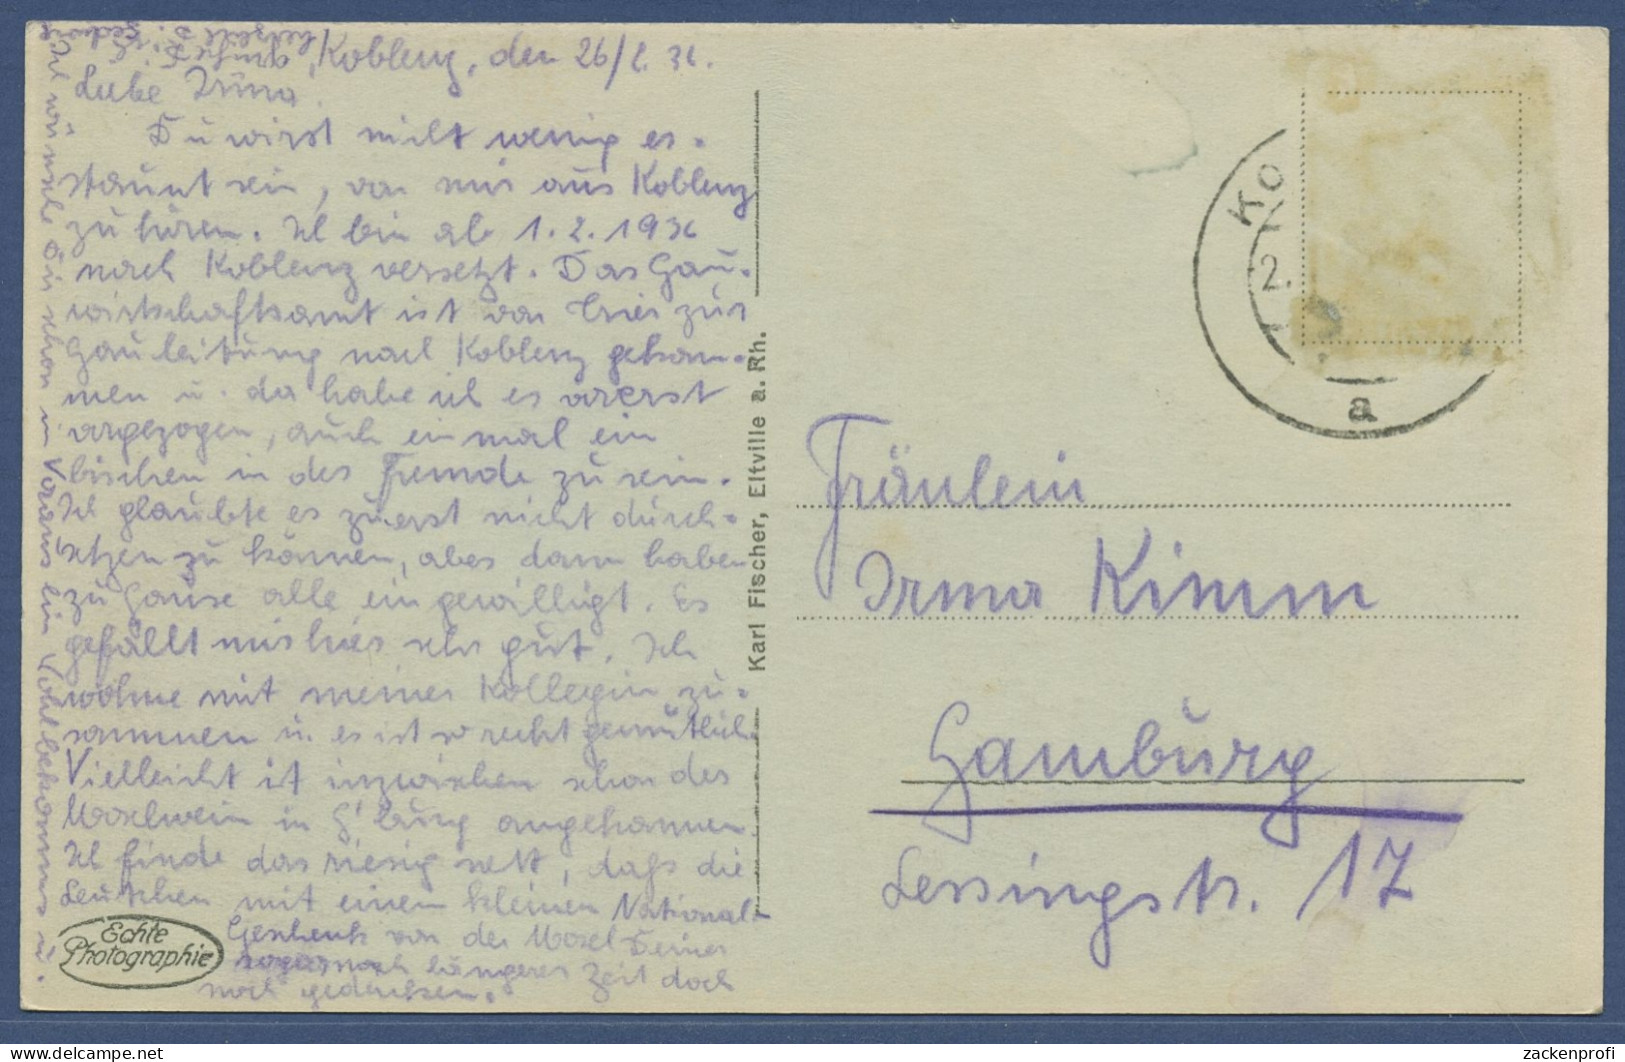 Koblenz, den 26/2. 36.
Liebe Irma,
Du wirst nicht wenig er-
staunt sein, von mir aus Koblenz
zu hören. Ich bin ab 1.2.1936
nach Koblenz versetzt. Das Gau-
wirtschaftsamt ist von Trier zur
Gauleitung nach Koblenz gekom-
men u. da habe ich es vorerst
vorgezogen, auch einmal ein
bischen in der Fremde zu sein.
Ich glaubte es zuerst nicht durch-
setzen zu können, aber dann haben
zu Hause alle eingewilligt. Es
gefällt mir hier sehr gut. Ich
wohne mit meiner Kollegin zu-
sammen u. es ist so recht gemütlich.
Vielleicht ist inzwischen schon der
Moselwein in H'burg angekommen.
Ich finde das riesig nett, daß die
Leutchen mit einem kleinen National-
Geschenk von der Mosel Deiner
noch längerer Zeit doch
noch gedenken.
Ich wünsche Dir schon im Voraus ein Wohlbekomms
Echte
Photographie
Karl Fischer, Eltville a. Rh.
KO
2.
a
Fräulein
Irma Kimm
Hamburg
Lessingstr. 17
zackenprofi